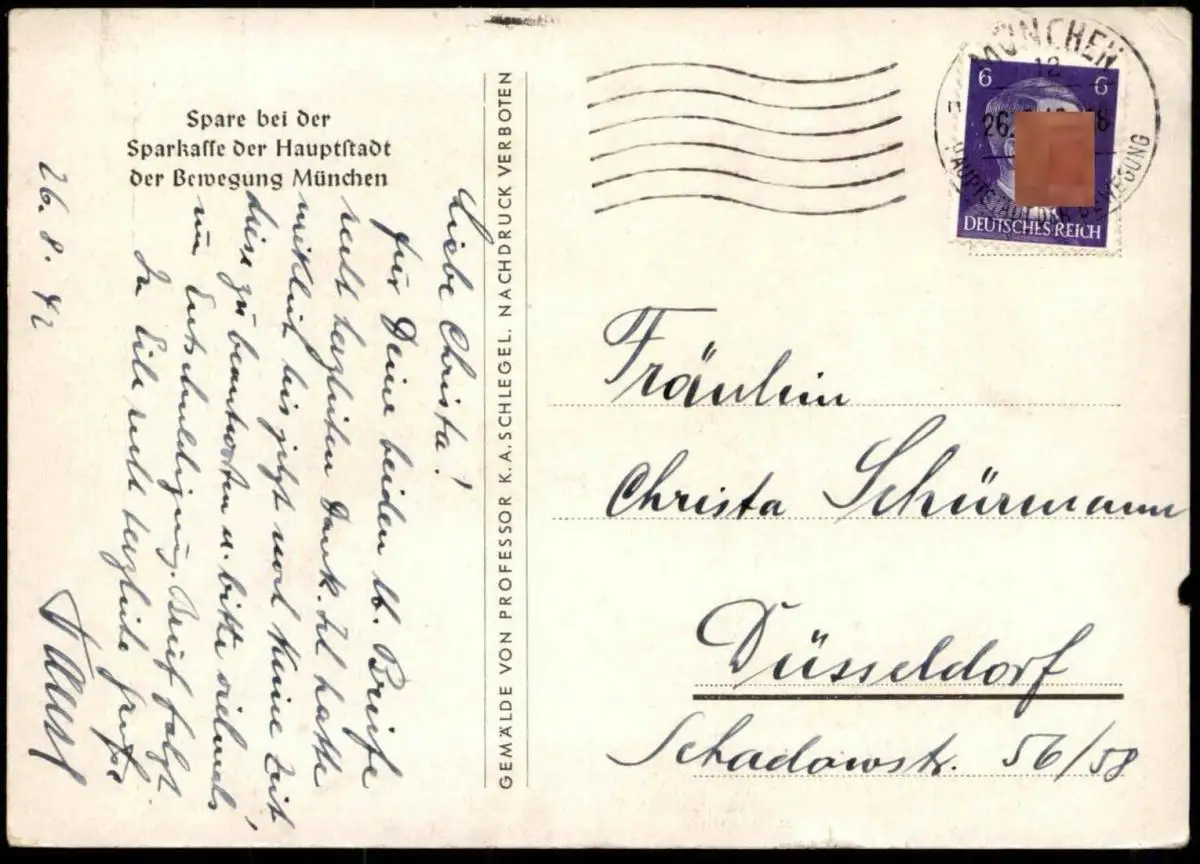 Spare bei der
Sparkasse der Hauptstadt
der Bewegung München
26. 8. 42
Liebe Christa!
für Deine beiden lb. Briefe
recht herzlichen Dank. Ich hatte
wirklich bis jetzt noch keine Zeit
diese zu beantworten u. bitte vielmals
um Entschuldigung. Brief folgt
In Eile recht herzliche Grüße
GEMÄLDE VON PROFESSOR K. A. SCHLEGEL. NACHDRUCK VERBOTEN
MÜNCHEN
12
26.
HAUPTSTADT DER BEWEGUNG
6 6
DEUTSCHES REICH
Fräulein
Christa Schürmann
Düsseldorf
Schadowstr. 56/58